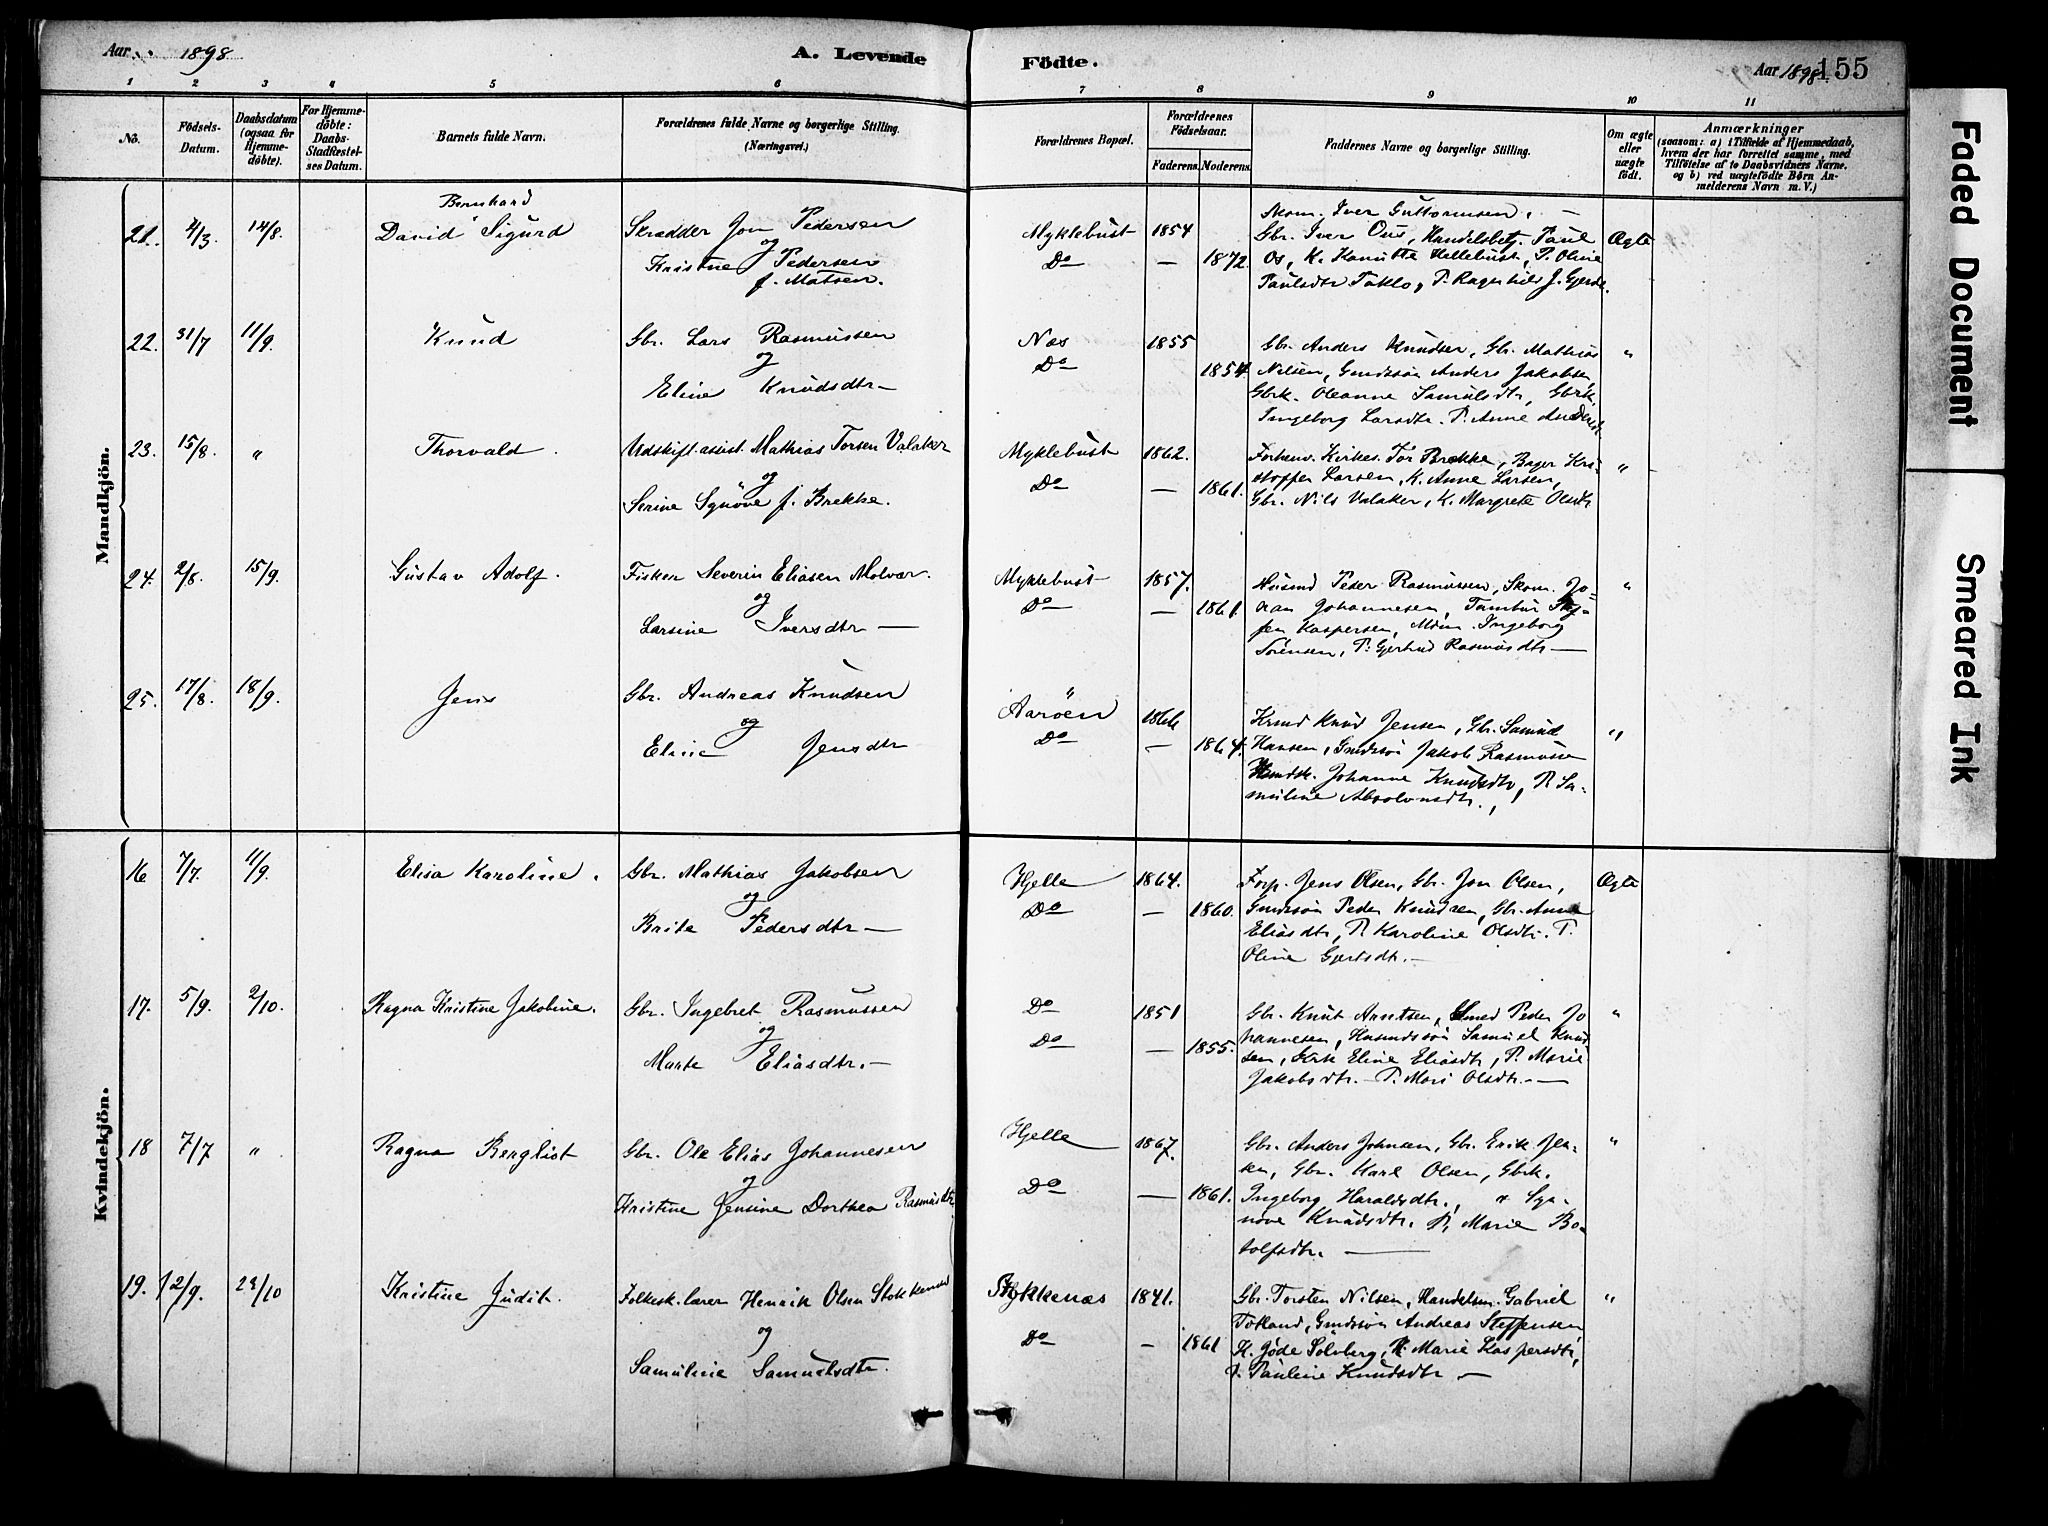 Aar 1898
A. Levende
Födte.
Aar 1898.
155
1 2 3 4 5 6 7 8 9 10 11
No.
Födsels-Datum.
Daabsdatum (ogsaa for Hjemme-döbte).
For Hjemme-döbte: Daabs-Stadfæstelses Datum.
Barnets fulde Navn.
Forældrenes fulde Navne og borgerlige Stilling. (Næringsvei.)
Forældrenes Bopæl.
Forældrenes Födselsaar.
Faderens. Moderens.
Faddernes Navne og borgerlige Stilling.
Om ægte eller uægte födt.
Anmærkninger
(saasom: a) i Tilfælde af Hjemmedaab,
hvem der har forrettet samme, med
Tilföielse af to Daabsvidners Navne.
og b) ved uægtefödte Börn An-
melderens Navn m. V.)
Faded Document
Smeared Ink
Mandkjön.
21. 4/3 14/8.
Bernhard
David Sigurd
Skrædder Jon Pedersen
og
Kristine Pedersen
f. Matsen.
Myklebust 1854
Do — 1872.
Skom. Iver Guttormsen. —
Gbr. Iver Ous, Handelsbetj. Paul
Os, K. Hellebust, P. Oline
Paulsdtr Taklo, P. Ragnhild J. Gjerde.
Ægte
22. 31/7 11/9.
Knud
Gbr. Lars Rasmussen
og
Eline Knudsdtr —
Nes 1855
Do 1854.
Gbr. Anders Knudsen, Gbr. Mathias
Nilsen, Gmdssön Anders Jakobsen
Gbrk. Oleanne Samulsdtr, Gbrk.
Ingeborg Larsdtr. P. Anne Andersdtr.
"
23. 15/8. "
Thorvald.
Udskift.assist. Mathias Torsen Valaker
og
Serine Synöve f. Brekke.
Myklebust 1862.
Do — 1861.
Forhenv. Kirkes. Tor Brekke, Bager Kri-
stoffer Larsen, K. Anne Larsen,
Gbr. Nils Valaker, K. Margrete Olsdtr
"
24. 2/8. 15/9.
Gustav Adolf.
Fisker Severin Eliasen Molvær.
og
Larsine Iversdtr —
Myklebust 1857.
Do — 1861.
Husmd Peder Rasmussen, Skom. Jo-
han Johannesen, Tambur Stef-
fen Kaspersen, Ingeborg
Sörensen, P. Gjertrud Rasmusdtr —
"
25. 17/8. 18/9.
Jens
Gbr. Andreas Knudsen
og
Eline Jensdtr
Aaröen 1866
Do — 1864.
Knud Jensen, Gbr. Samuel
Hansen, Gmdssön Jakob Rasmussen
Johanne Knudsdtr, P. Sa-
muline Absolonsdtr.
"
Kvindekjön.
16 7/7. 11/9.
Elisa Karoline.
Gbr. Mathias Jakobsen
og
Brite Pedersdtr —
Hjelle 1864.
Do — 1860.
Forp. Jens Olsen, Gbr. Jon Olsen,
Gmdssön Peder Knudsen, Gbr. Anne
Eliasdtr, P. Karoline Olsdtr. P.
Oline Gjertsdtr. —
Ægte
17. 5/9. 2/10.
Ragna Kristine Jakobine.
Gbr. Ingebret Rasmussen
og
Marte Eliasdtr. —
Do 1851
Do — 1855.
Gbr. Knut Arntsen, Smed Peder Jo
hannesen, Husmdssön Samuel Knud
sen, Gbrk Eline Eliasdtr, P. Marie
Jakobsdtr. — P. Mari Olsdtr. —
"
18 7/7 "
Ragna Bergliot
Gbr. Ole Elias Johannesen
og
Kristine Jensine Dorthea Rasmusdtr
Hjelle 1867.
Do — 1861.
Gbr. Anders Johnsen, Gbr. Erik Jen-
sen, Gbr. Karl Olsen, Gbrk.
Ingeborg Haraldsdtr., Syn-
növe Knudsdtr. P. Marie Bo-
tolfsdtr. —
"
19. 12/9. 23/10
Kristine Judit.
Folkesk.lærer Henrik Olsen Stokkenæs
og
Samuline Samuelsdtr.
Stokkenæs 1841.
Do — 1861
Gbr. Torsten Nilsen, Handelsm. Gabriel
Tokland, Gmdssön Andreas Steffensen
K. Jöde Sölvberg, K. Marie Kaspersdtr,
P. Pauline Knudsdtr —
"